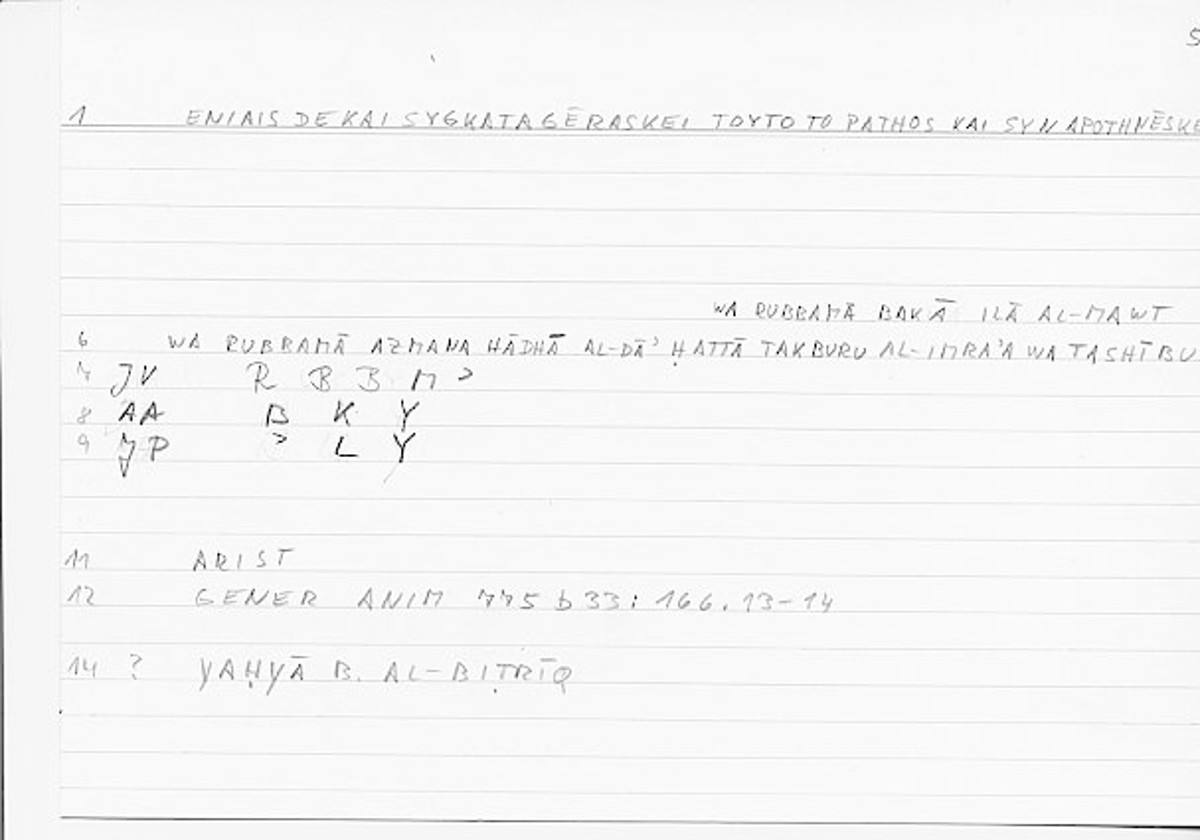 5
1 ENIAIS DE KAI SYGKATAGĒRASKEI TOYTO TO PATHOS KAI SYNAPOTHNĒSKE
WA RUBBAMĀ BAKĀ ILĀ AL-MAWT
6 WA RUBBAMĀ AZMANA HĀDHĀ AL-DĀʾ ḤATTĀ TAKBURU AL-IMRAʾA WA TASHĪBU
7 JV R B B M ʾ
8 AA B K Y
9 JP ʾ L Y
11 ARIST
12 GENER ANIM 775 b 33: 166.13-14
14 ? YAḤYĀ B. AL-BIṬRĪQ